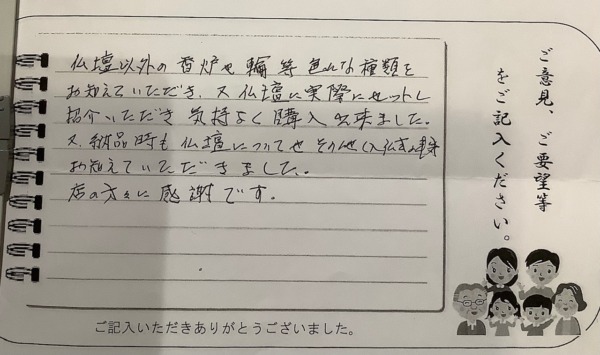 ご意見、ご要望等
をご記入ください。
仏壇以外の香炉や輪等色んな種類を
お知えていただき、又仏壇に実際にセットし
紹介いただき気持よく購入出来ました。
又、納品時も仏壇についてや その他(入仏式の事等
お知えていただきました。
店の方々に感謝です。
ご記入いただきありがとうございました。